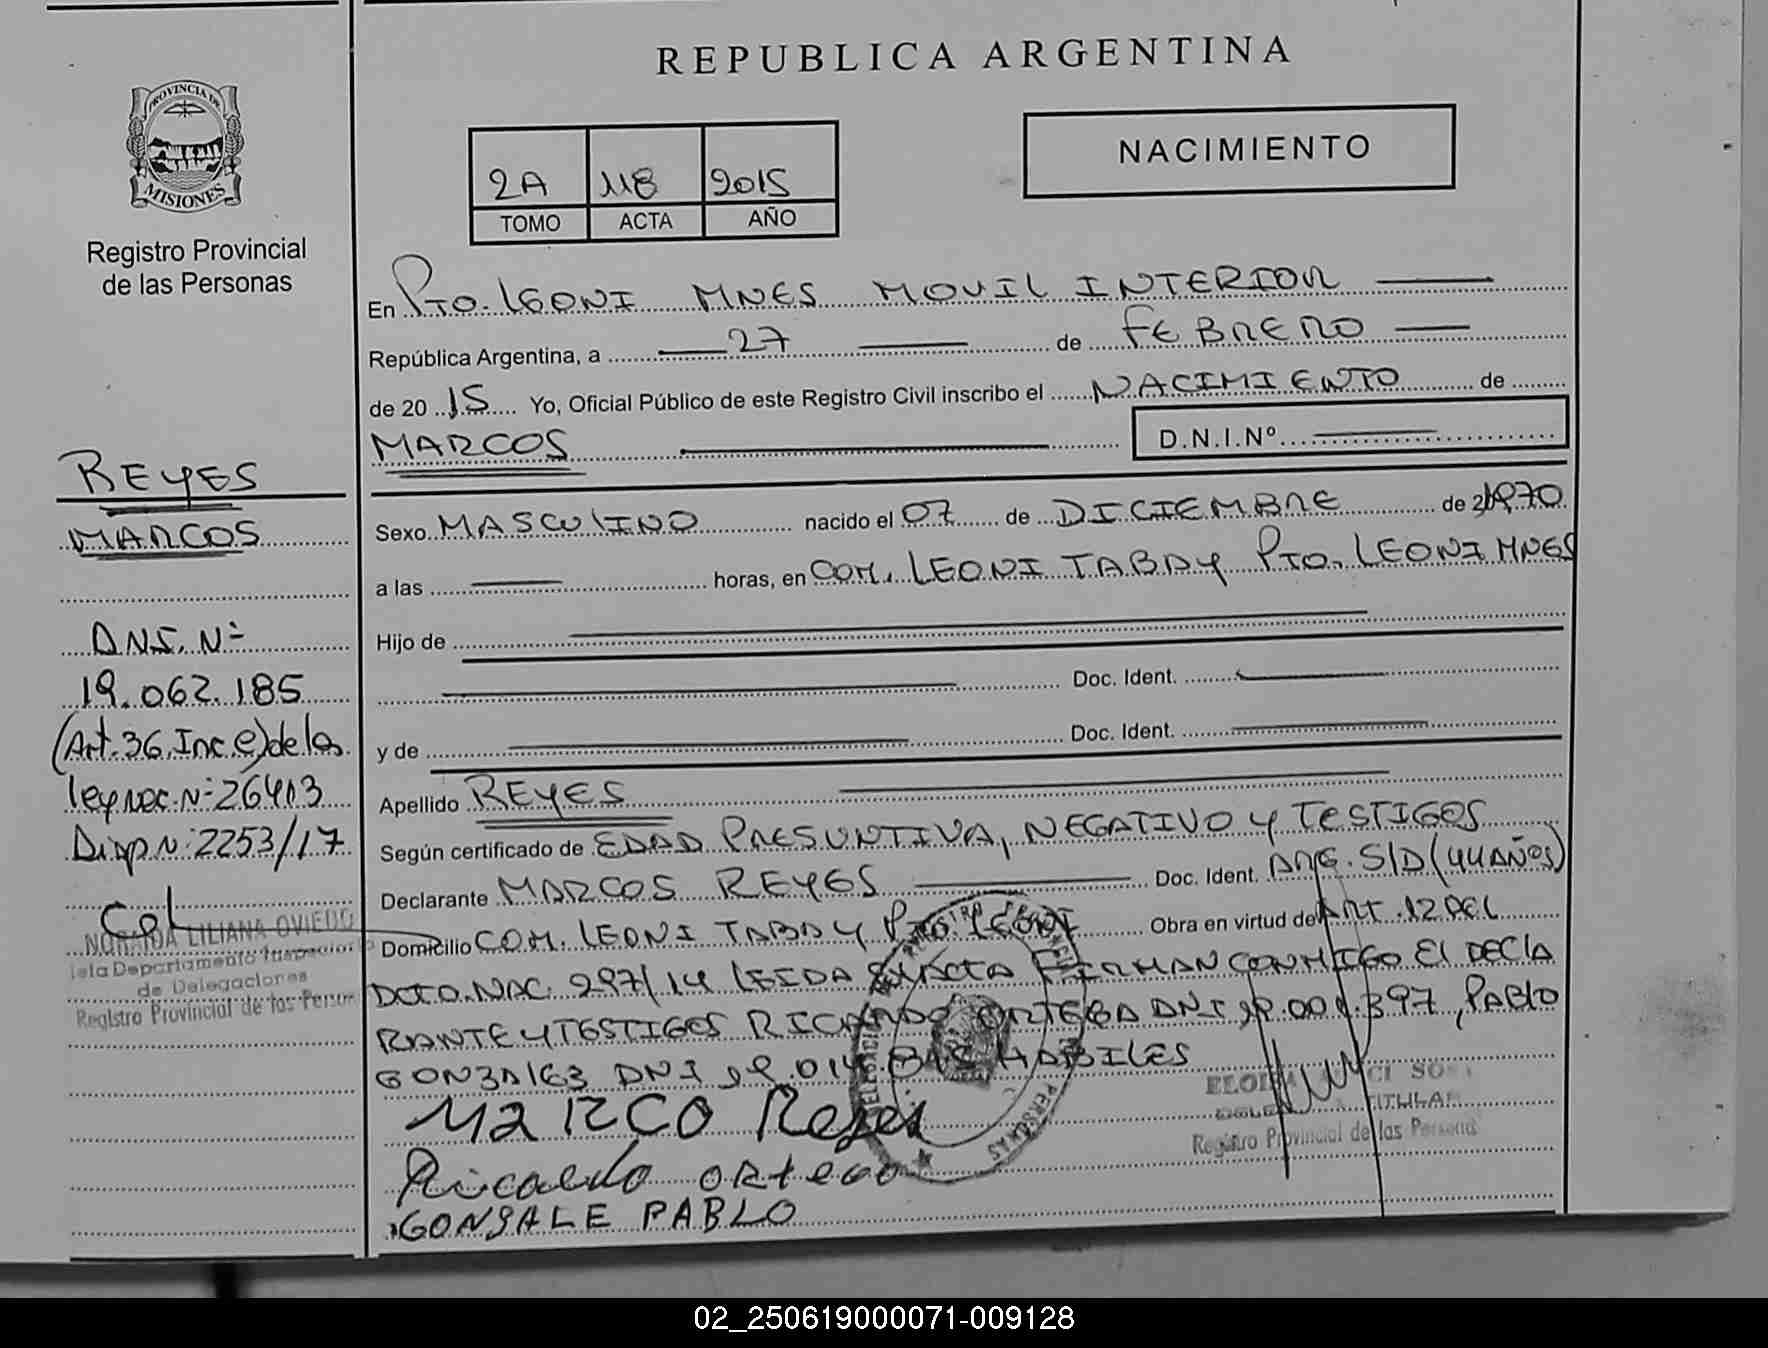 REPUBLICA ARGENTINA
PROVINCIA DE
MISIONES
Registro Provincial
de las Personas
NACIMIENTO
2A 118 2015
TOMO ACTA AÑO
En Pto. Leoni MNES MOVIL INTERIOR
República Argentina, a 27 de FEBRERO
de 2015 Yo, Oficial Público de este Registro Civil inscribo el NACIMIENTO de
MARCOS D.N.I.Nº
REYES
MARCOS
D.N.I. Nº
19.062.185
(Art. 36. Inc. e) de la
Ley Nac. Nº 26413
Disp Nº 2253/17
NORAIDA LILIANA OVIEDO
Departamento Inspección
de Delegaciones
Registro Provincial de las Person
Sexo MASCULINO nacido el 07 de DICIEMBRE de 1970
a las horas, en COM. LEONI TABAY PTO. LEONI MNES
Hijo de
Doc. Ident.
y de Doc. Ident.
Apellido REYES
Según certificado de EDAD PRESUNTIVA, NEGATIVO y TESTIGOS
Declarante MARCOS REYES Doc. Ident. ARG. S/D (44 AÑOS)
Domicilio COM. LEONI TABAY Pto. LEONI Obra en virtud de ART. 12 DEL
DCTO. NAC. 297/14 LEIDA EL ACTA FIRMAN CONMIGO EL DECLA
RANTE y TESTIGOS RICARDO ORTEGA DNI 397, PABLO
GONZALEZ DNI HABILES
MaRCO Reyes
Ricardo ortega
GONSALE PABLO
TITULAR
Registro Provincial de las Personas
02_250619000071-009128